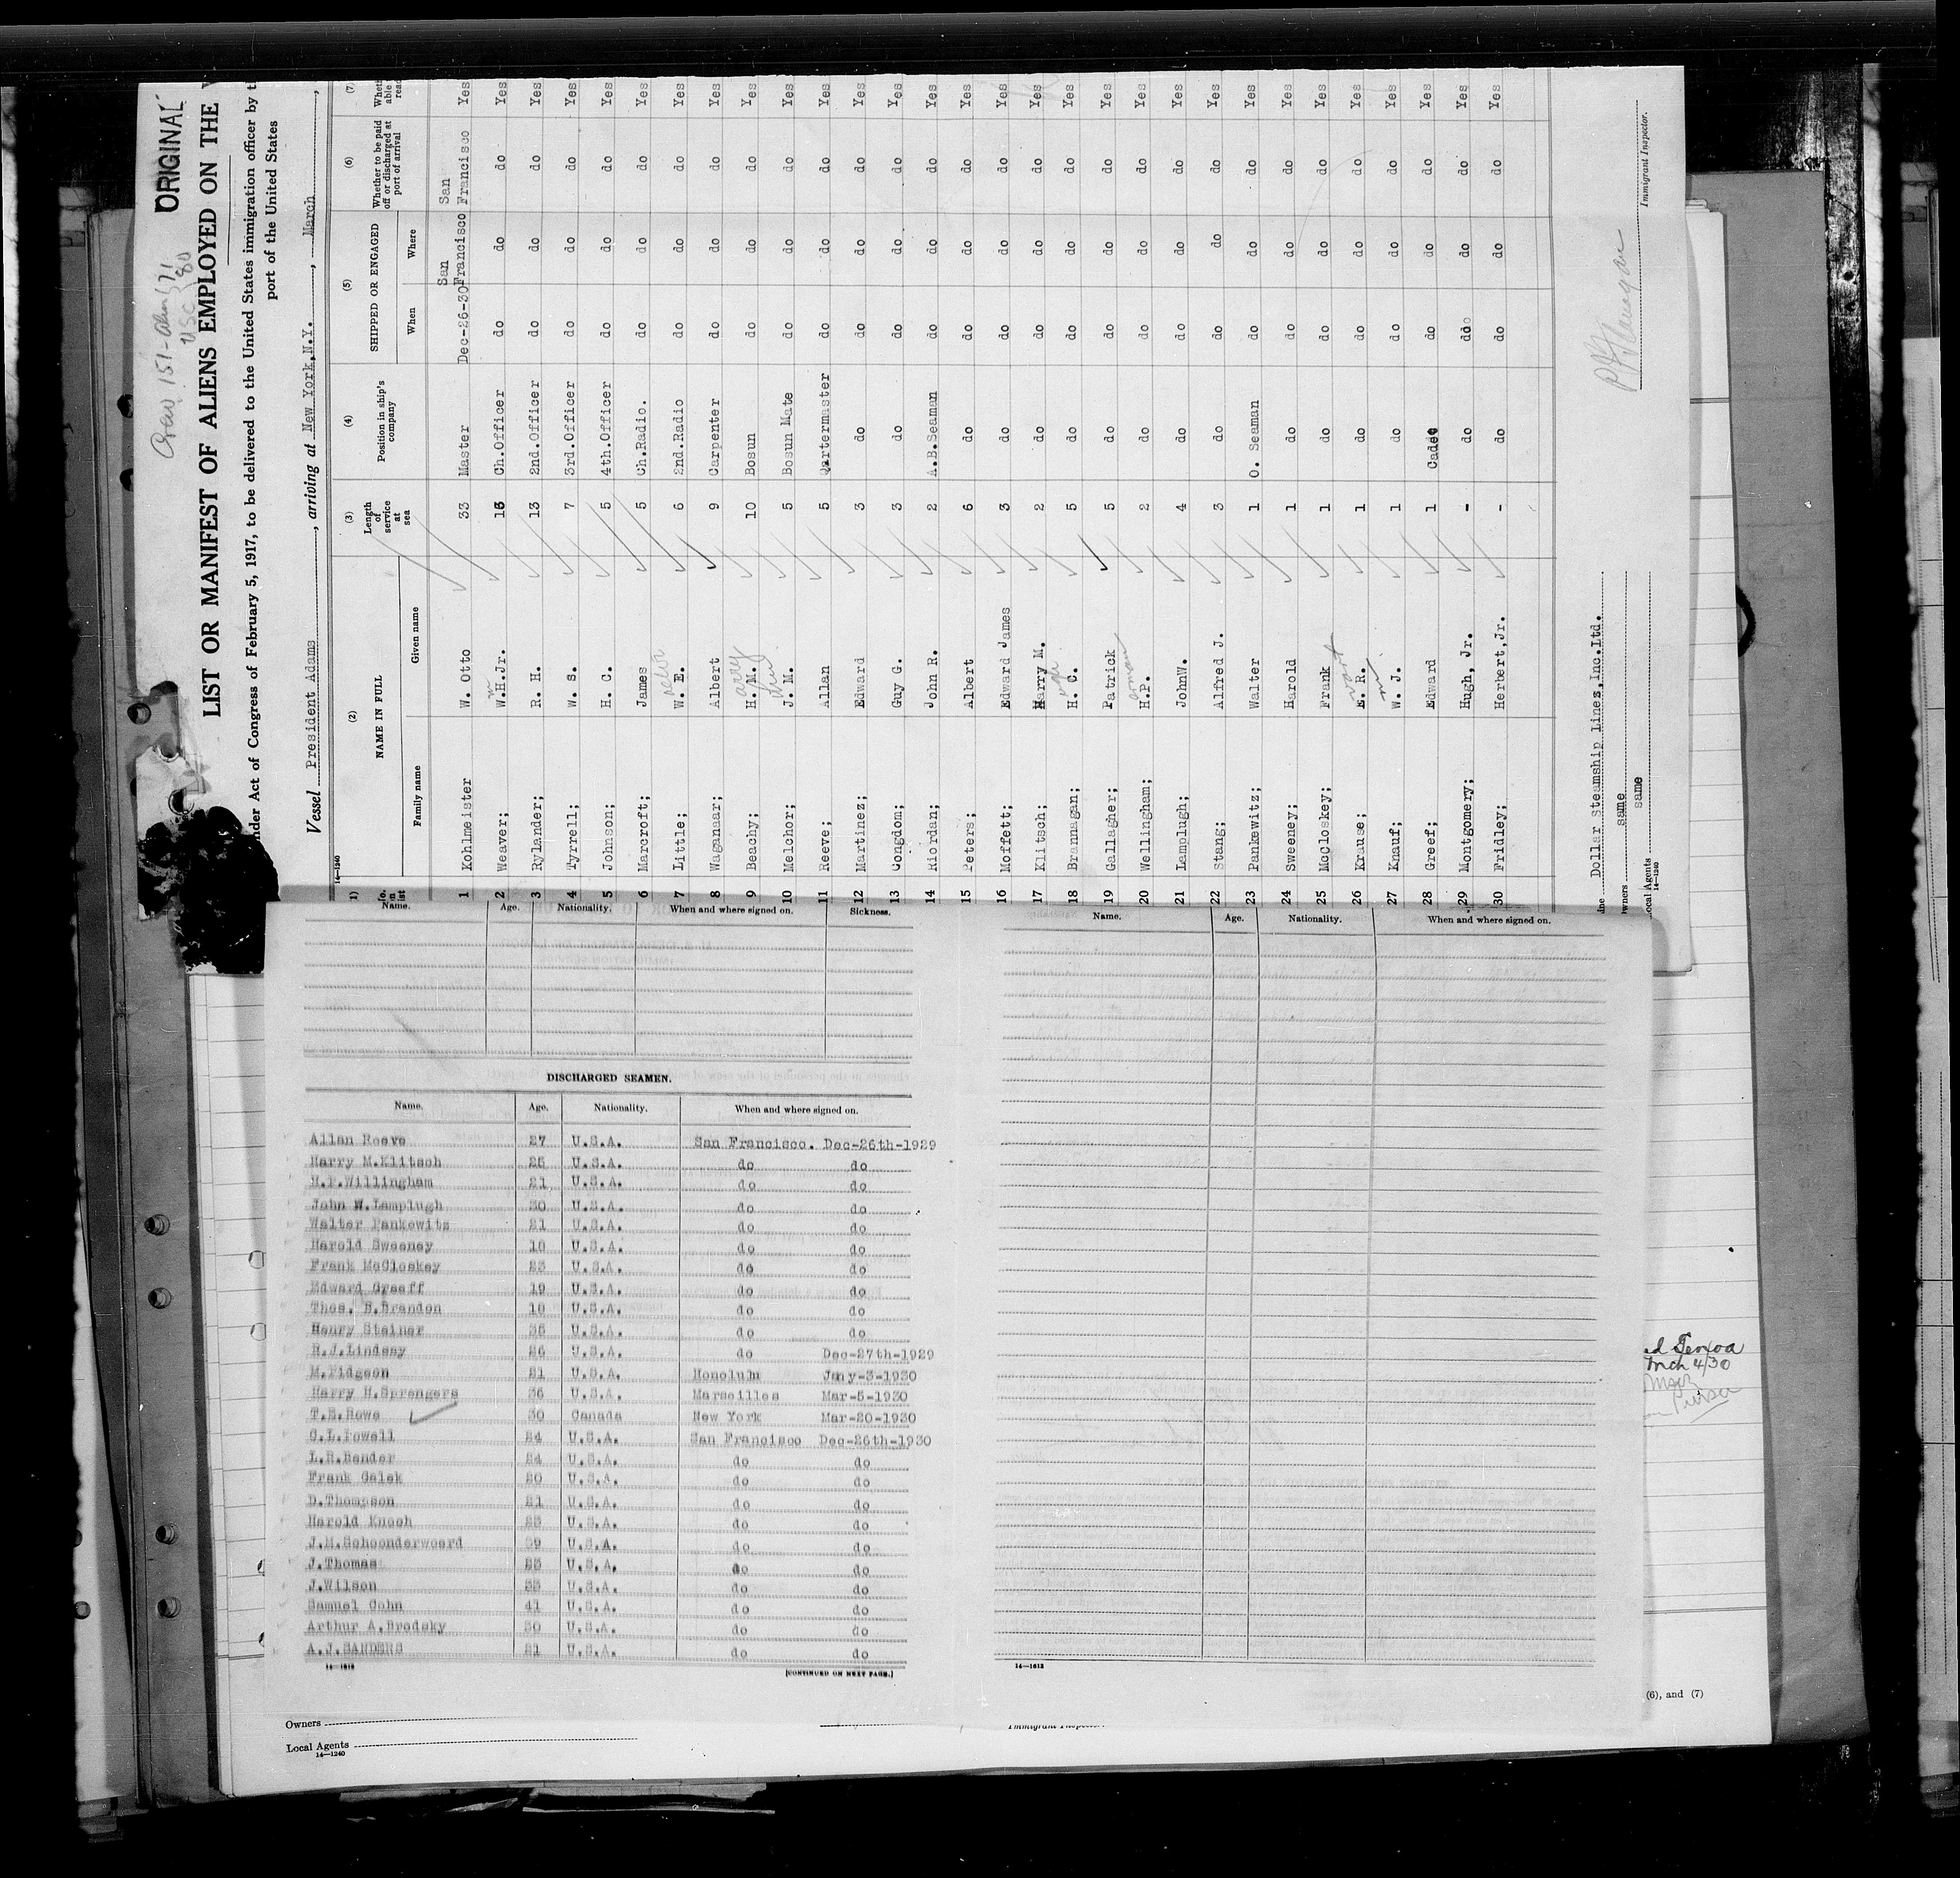 ORIGINAL
Crew 151-Alien 71
USC 80
LIST OR MANIFEST OF ALIENS EMPLOYED ON THE
nder Act of Congress of February 5, 1917, to be delivered to the United States immigration officer by t
port of the United States
Vessel President Adams, arriving at New York, N.Y., March
14—1240
(2) (3) (4) (5) (6) (7)
NAME IN FULL Length of service at sea Position in ship's company SHIPPED OR ENGAGED Whether to be paid off or discharged at port of arrival
Family name Given name When Where
1 Kohlmeister W. Otto 33 Master Dec-26-30 San Francisco San Francisco Yes
2 Weaver; W.H.Jr. 16 Ch.Officer do do do Yes
3 Rylander; R. H. 13 2nd.Officer do do do Yes
4 Tyrrell; W. S. 7 3rd.Officer do do do Yes
5 Johnson; H. C. 5 4th.Officer do do do Yes
6 Marcroft; James 5 Ch.Radio. do do do Yes
7 Little; W. E. 6 2nd.Radio do do do Yes
8 Waganaar; Albert 9 Carpenter do do do Yes
9 Beachy; H. M. arry 10 Bosun do do do Yes
10 Melchor; J. M. 5 Bosun Mate do do do Yes
11 Reeve; Allan 5 Qartermaster do do do Yes
12 Martinez; Edward 3 do do do do Yes
13 Congdom; Guy G. 3 do do do do Yes
14 Riordan; John R. 2 A.B.Seaman do do do Yes
15 Peters; Albert 6 do do do do Yes
16 Moffett; Edward James 3 do do do do Yes
17 Klitsch; Harry M. 2 do do do do Yes
18 Brannagan; H. C. 5 do do do do Yes
19 Gallagher; Patrick 5 do do do do Yes
20 Wellingham; H.P. 2 do do do do Yes
21 Lamplugh; JohnW. 4 do do do do Yes
22 Stang; Alfred J. 3 do do do do Yes
23 Pankewitz; Walter 1 O. Seaman do do do Yes
24 Sweeney; Harold 1 do do do do Yes
25 McCloskey; Frank 1 do do do do Yes
26 Krause; E. R. 1 do do do do Yes
27 Knauf; W. J. 1 do do do do Yes
28 Greef; Edward 1 Cadet do do do Yes
29 Montgomery; Hugh, Jr. - do do do do Yes
30 Fridley; Herbert,Jr. - do do do do Yes
Dollar Steamship Lines,Inc.Ltd.
wners same
ocal Agents same
14—1240
Immigrant Inspector.
Name. Age. Nationality. When and where signed on. Sickness.
DISCHARGED SEAMEN.
Name. Age. Nationality. When and where signed on.
Allan Reeve 27 U.S.A. San Francisco. Dec-26th-1929
Harry M.Klitsch 25 U.S.A. do do
H.P.Willingham 21 U.S.A. do do
John W.Lamplugh 30 U.S.A. do do
Walter Pankewitz 21 U.S.A. do do
Harold Sweeney 18 U.S.A. do do
Frank McCloskey 23 U.S.A. do do
Edward Greeff 19 U.S.A. do do
Thos. B.Brandon 18 U.S.A. do do
Henry Steiner 35 U.S.A. do do
R.J.Lindsay 26 U.S.A. do Dec-27th-1929
M.Fidgeon 21 U.S.A. Honolulu Jany-3-1930
Harry H.Sprengers 36 U.S.A. Marseilles Mar-5-1930
T.E.Rowe 30 Canada New York Mar-20-1930
C.L.Powell 24 U.S.A. San Francisco Dec-26th-1930
L.R.Bender 24 U.S.A. do do
Frank Galek 20 U.S.A. do do
D.Thompson 21 U.S.A. do do
Harold Knoch 23 U.S.A. do do
J.M.Schoonderwoerd 39 U.S.A. do do
J.Thomas 23 U.S.A. do do
J.Wilson 33 U.S.A. do do
Samuel Cohn 41 U.S.A. do do
Arthur A.Brodsky 30 U.S.A. do do
A.J.SANDERS 21 U.S.A. do do
14—1612
[CONTINUED ON NEXT PAGE.]
Name. Age. Nationality. When and where signed on.
14—1612
Mch 4/30
Purser
(6), and (7)
Owners
Local Agents
14—1240